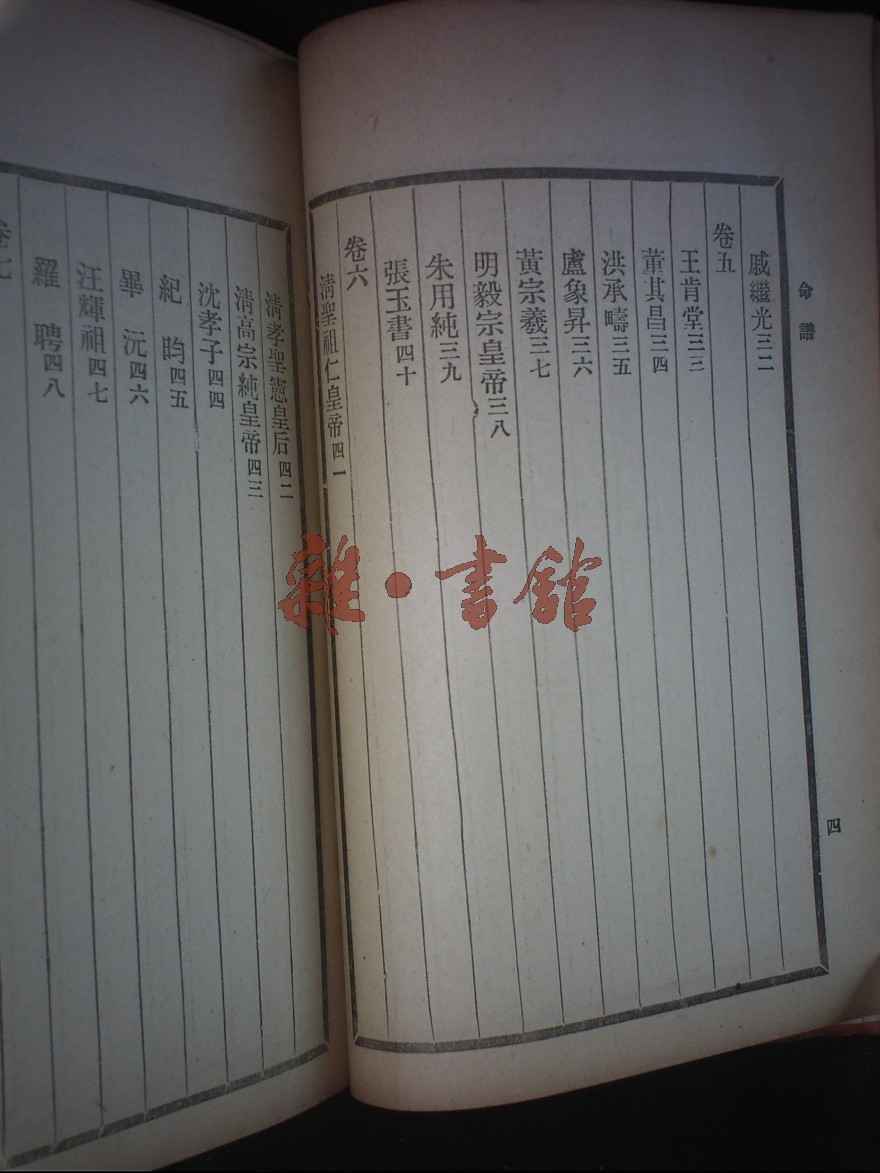 命譜
四
戚繼光三二
卷五
王肯堂三三
董其昌三四
洪承疇三五
盧象昇三六
黃宗羲三七
明毅宗皇帝三八
朱用純三九
張玉書四十
卷六
清聖祖仁皇帝四一
清孝聖憲皇后四二
清高宗純皇帝四三
沈孝子四四
紀昀四五
畢沅四六
汪輝祖四七
羅聘四八
卷七
雜·書館